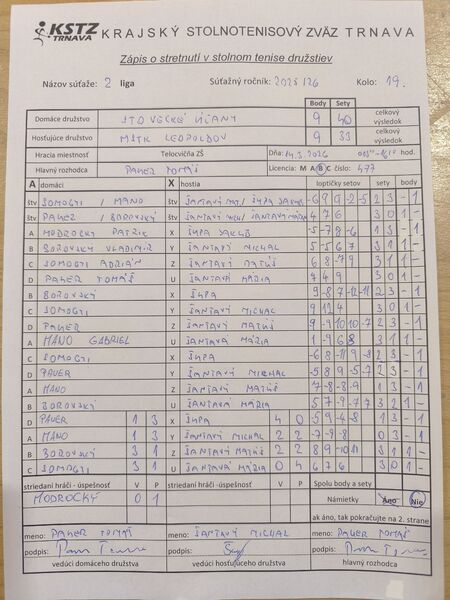 KSTZ TRNAVA KRAJSKÝ STOLNOTENISOVÝ ZVÄZ TRNAVA
Zápis o stretnutí v stolnom tenise družstiev
Názov súťaže: 2 liga Súťažný ročník: 2025/26 Kolo: 19.
Body Sety
Domáce družstvo STO VEĽKÉ ÚĽANY 9 40 celkový výsledok
Hosťujúce družstvo MSTK LEOPOLDOV 9 33 celkový výsledok
Hracia miestnosť Telocvičňa ZŠ Dňa: 14.3.2026 hod.
Hlavný rozhodca PAUER TOMÁŠ Licencia: M A B C číslo: 477
A domáci X hostia loptičky setov sety body
štv SOMOGYI / MANO štv ŠANTAVÝ MAT / ŠUPA JAKUB -6 9 9 -2 -5 2 3 - 1
štv PAUER / BOROVSKÝ štv ŠANTAVÝ MICH / ŠANTAVÁ MÁRIA 4 7 6 3 0 1 -
A MODROCKÝ PATRIK X ŠUPA JAKUB -5 -7 8 -6 1 3 - 1
B BOROVSKÝ VLADIMÍR Y ŠANTAVÝ MICHAL -5 5 6 7 3 1 1 -
C SOMOGYI ADRIÁN Z ŠANTAVÝ MATÚŠ 6 8 -7 9 3 1 1 -
D PAUER TOMÁŠ U ŠANTAVÁ MÁRIA 7 4 9 3 0 1 -
B BOROVSKÝ X ŠUPA 9 -8 7 -12 -11 2 3 - 1
C SOMOGYI Y ŠANTAVÝ MICHAL 9 12 4 3 0 1 -
D PAUER Z ŠANTAVÝ MATÚŠ 9 -9 10 10 -7 2 3 - 1
A MANO GABRIEL U ŠANTAVÁ MÁRIA 1 -9 6 8 3 1 1 -
C SOMOGYI X ŠUPA -6 8 -11 9 -3 2 3 - 1
D PAUER Y ŠANTAVÝ MICHAL -5 8 9 -5 -7 2 3 - 1
A MANO Z ŠANTAVÝ MATÚŠ 7 -8 -8 -9 1 3 - 1
B BOROVSKÝ U ŠANTAVÁ MÁRIA 5 7 -9 -7 7 3 2 1 -
D PAUER 1 3 X ŠUPA 4 0 -5 9 -4 -8 1 3 - 1
A MANO 1 3 Y ŠANTAVÝ MICHAL 2 2 -7 -9 -8 0 3 - 1
B BOROVSKÝ 3 1 Z ŠANTAVÝ MATÚŠ 2 2 8 9 -10 11 3 1 1 -
C SOMOGYI 3 1 U ŠANTAVÁ MÁRIA 0 4 6 7 6 3 0 1 -
striedaní hráči - úspešnosť V P striedaní hráči - úspešnosť V P Spolu body a sety
MODROCKÝ 0 1 Námietky Áno Nie
ak áno, tak pokračujte na 2. strane
meno: PAUER TOMÁŠ meno: ŠANTAVÝ MICHAL meno: PAUER TOMÁŠ
podpis: podpis: podpis:
vedúci domáceho družstva vedúci hosťujúceho družstva hlavný rozhodca